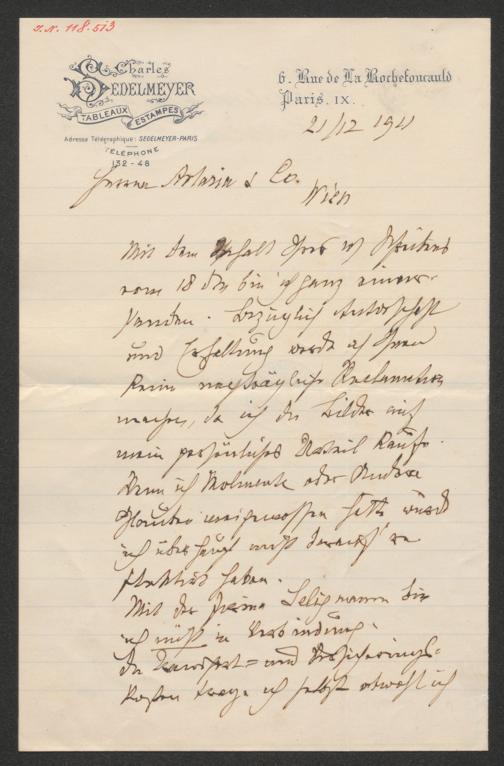 I.N. 118.513
Charles
SEDELMEYER
TABLEAUX
ESTAMPES
Adresse Télégraphique: SEDELMEYER-PARIS
TÉLÉPHONE
132-48
6. Rue de La Rochefoucauld
Paris, IX.
21/12 1911
Herren Artaria & Co.
Wien
Mit dem Inhalt Ihres Schreibens
vom 18 bin ich ganz einver-
standen. Bezüglich Autorschaft
und Erhaltung werde ich Ihnen
keine nachträgliche Reclamation
machen, da ich die Bilder auf
mein persönliches Urteil kaufe.
Wenn ich Molmente oder Andere
Glauben hätte würde
ich überhaupt nicht darauf re-
flektirt haben.
Mit der Firma Seligmann bin
ich nicht in Verbindung.
Die Transport= und Versicherungs=
kosten trage ich selbst obwohl ich